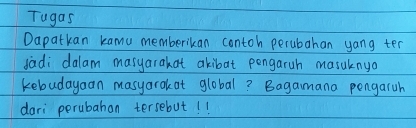 Tugas
Dapatkan kamu memberikan contoh perubahan yang ter
jadi dalam masyarakat akibat pengaruh masuknya
kebudayaan masyarakat global ? Bagaimana pengaruh
dari perubahan tersebut !!